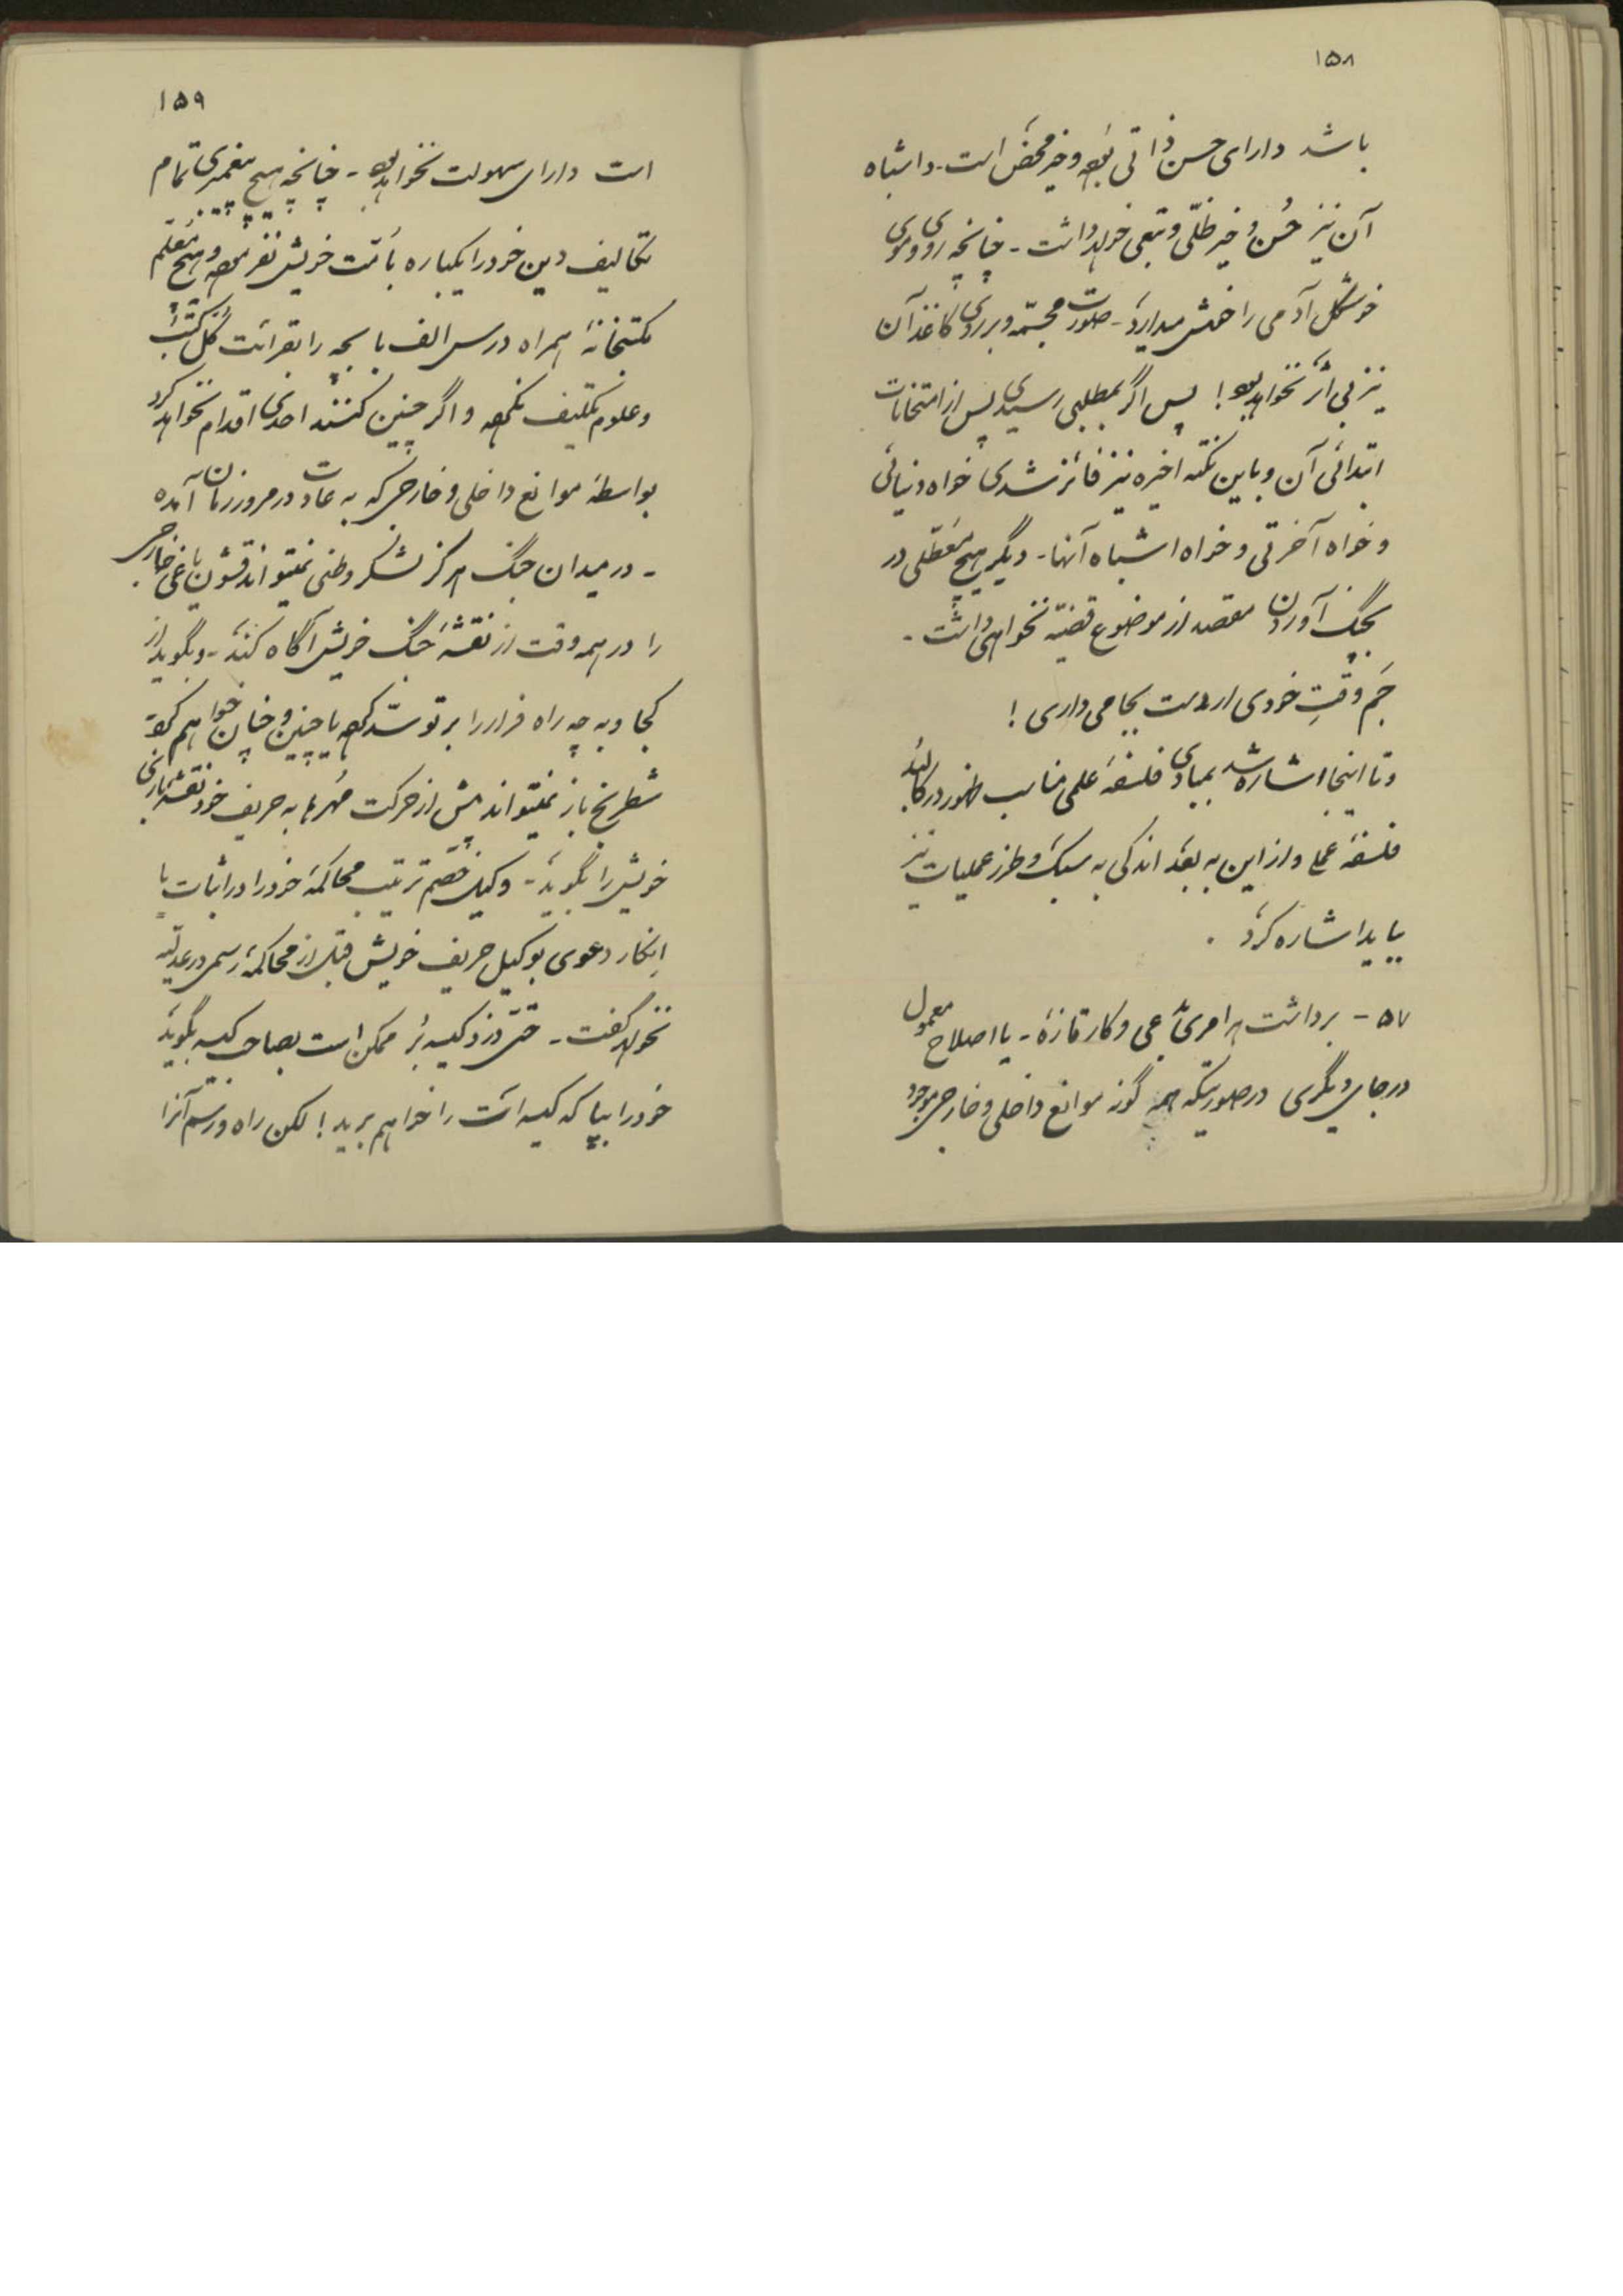 ۱۵۸
باشد دارای حسن ذاتی بوده و خیر محض است - و اشباه
آن نیز حُسن و خیر ظلّی و تبعی خواهد داشت - چنانچه روی و موی
خوشگل آدمی را خوش میدارد - صورت مجسّمه و بر روی کاغذ آن
نیز بی اثر نخواهد بود! پس اگر بمطلبی رسیدی پس از امتحانات
ابتدائی آن و باین نکته اخیره نیز فائز شدی خواه دنیائی
و خواه آخرتی و خواه اشباه آنها - دیگر هیچ معطّلی در
بچنگ آوردن مقصد از موضوع قضیّه نخواهی داشت -
جَم وقتِ خودی ار دست بجامی داری!
و تا اینجا اشاره شد بمبادی فلسفهٔ علمی مناسب ظهور در
فلسفهٔ عملی و از این به بعد اندکی به سبک و طرز عملیات نیز
بباید اشاره کرد .
۵۷ - برداشت هر امری و کار تازه - یا اصلاح معمول
در جای دیگری در صورتیکه همه گونه موانع داخلی و خارجی موجود
۱۵۹
است دارای سهولت نخواهد بود - چنانچه هیچ پیغمبری تمام
تکالیف دین خود را یکباره بامّت خویش نفرموده و هیچ معلّم
مکتبخانهٔ همراه درس الف با بچه را بقرائت کُلّ کتب
و علوم تکلیف نکرده و اگر چنین کنند احدی اقدام نخواهد کرد
بواسطهٔ موانع داخلی و خارجی که به عادت در مرور زمان آمده
- در میدان جنگ هرگز لشکر وطنی نمیتواند قشون یاغی خارجی
را در همه وقت از نقشهٔ جنگ خویش آگاه کند - و بگوید از
کجا و به چه راه فرار را بر تو سدّ کرده یا چنین و چنان خواهم کرد
شطرنج باز نمیتواند پیش از حرکت مُهرها به حریف خود نقشهٔ بازی
خویش را بگوید - وکیل خصم ترتیب محاکمهٔ خود را در اثبات یا
اِنکار دعوی بوکیل حریف خویش قبل از محاکمهٔ رسمی در عدلیّه
نخواهد گفت - حتّی دزد کیسه بُر ممکن است بصاحب کیسه بگوید
خود را بپا که کیسه ات را خواهم برید! لکن راه و رسم آنرا